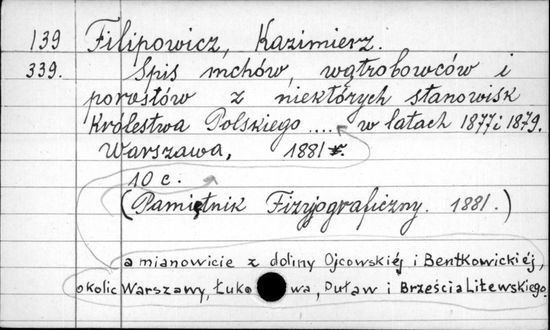 139 Filipowicz, Kazimierz.
339. Spis mchów, wątrobowców i
porostów z niektórych stanowisk
Królestwa Polskiego .... w latach 1877 i 1879.
Warszawa, 1881 r.
10 c.
(Pamiętnik Fizyjograficzny. 1881.)
a mianowicie z doliny Ojcowskiéj i Bentkowickiéj,
okolic Warszawy, Puław i Brześcia Litewskiego.